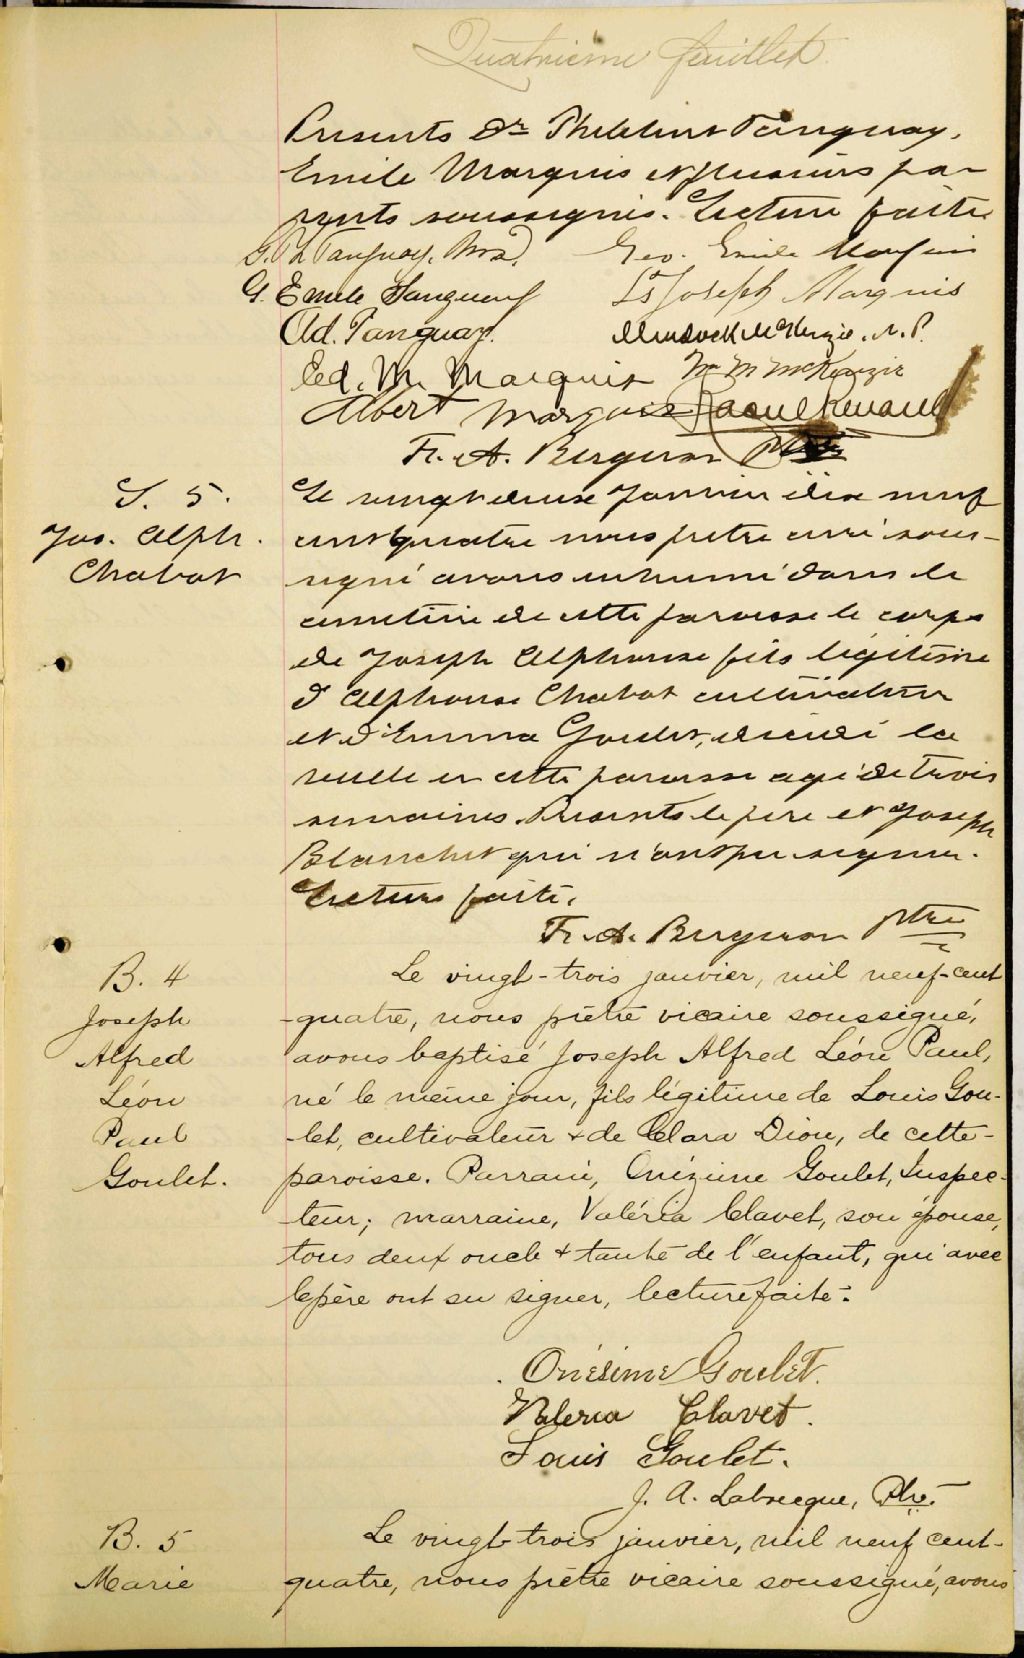 Quatrième feuillet
Presents Dr Philibert Tanguay,
Emile Marquis et plusieurs pa-
rents soussignés. Lecture faite
G. Ph Tanguay, M.D. Geo. Emile Marquis
G. Emile Tanguay Ls Joseph Marquis
Ad. Tanguay. Murdock McKenzie. N.P.
Ed. M. Marquis M McKenzie
Albert Marquis Raoul Renault
Fr. A. Bergeron Ptre
S. 5.
Jos. Alph.
Chabot
Le vingt deux Janvier dix neuf
cent quatre nous prêtre curé sous-
signé avons inhumé dans le
cimetière de cette paroisse le corps
de Joseph Alphonse fils légitime
d'Alphonse Chabot cultivateur
et d'Emma Goulet, décédé la
veille en cette paroisse agé de trois
semaines. Presents le père et Joseph
Blanchet qui n'ont pu signer.
Lecture faite.
Fr. A. Bergeron ptre
B. 4
Joseph
Alfred
Léon
Paul
Goulet.
Le vingt-trois janvier, mil neuf-cent
-quatre, nous prêtre vicaire soussigné,
avons baptisé Joseph Alfred Léon Paul,
né le même jour, fils légitime de Louis Gou-
-let, cultivateur & de Clara Dion, de cette-
paroisse. Parrain, Onézime Goulet, Inspec-
-teur; marraine, Valéria Clavet, son épouse,
tous deux oncle & tante de l'enfant, qui avec
le père ont su signer, lecture faite.
Onésime Goulet.
Valeria Clavet.
Louis Goulet.
J. A. Labrecque, Ptre.
B. 5
Marie
Le vingt-trois janvier, mil neuf cent-
quatre, nous prêtre vicaire soussigné, avons